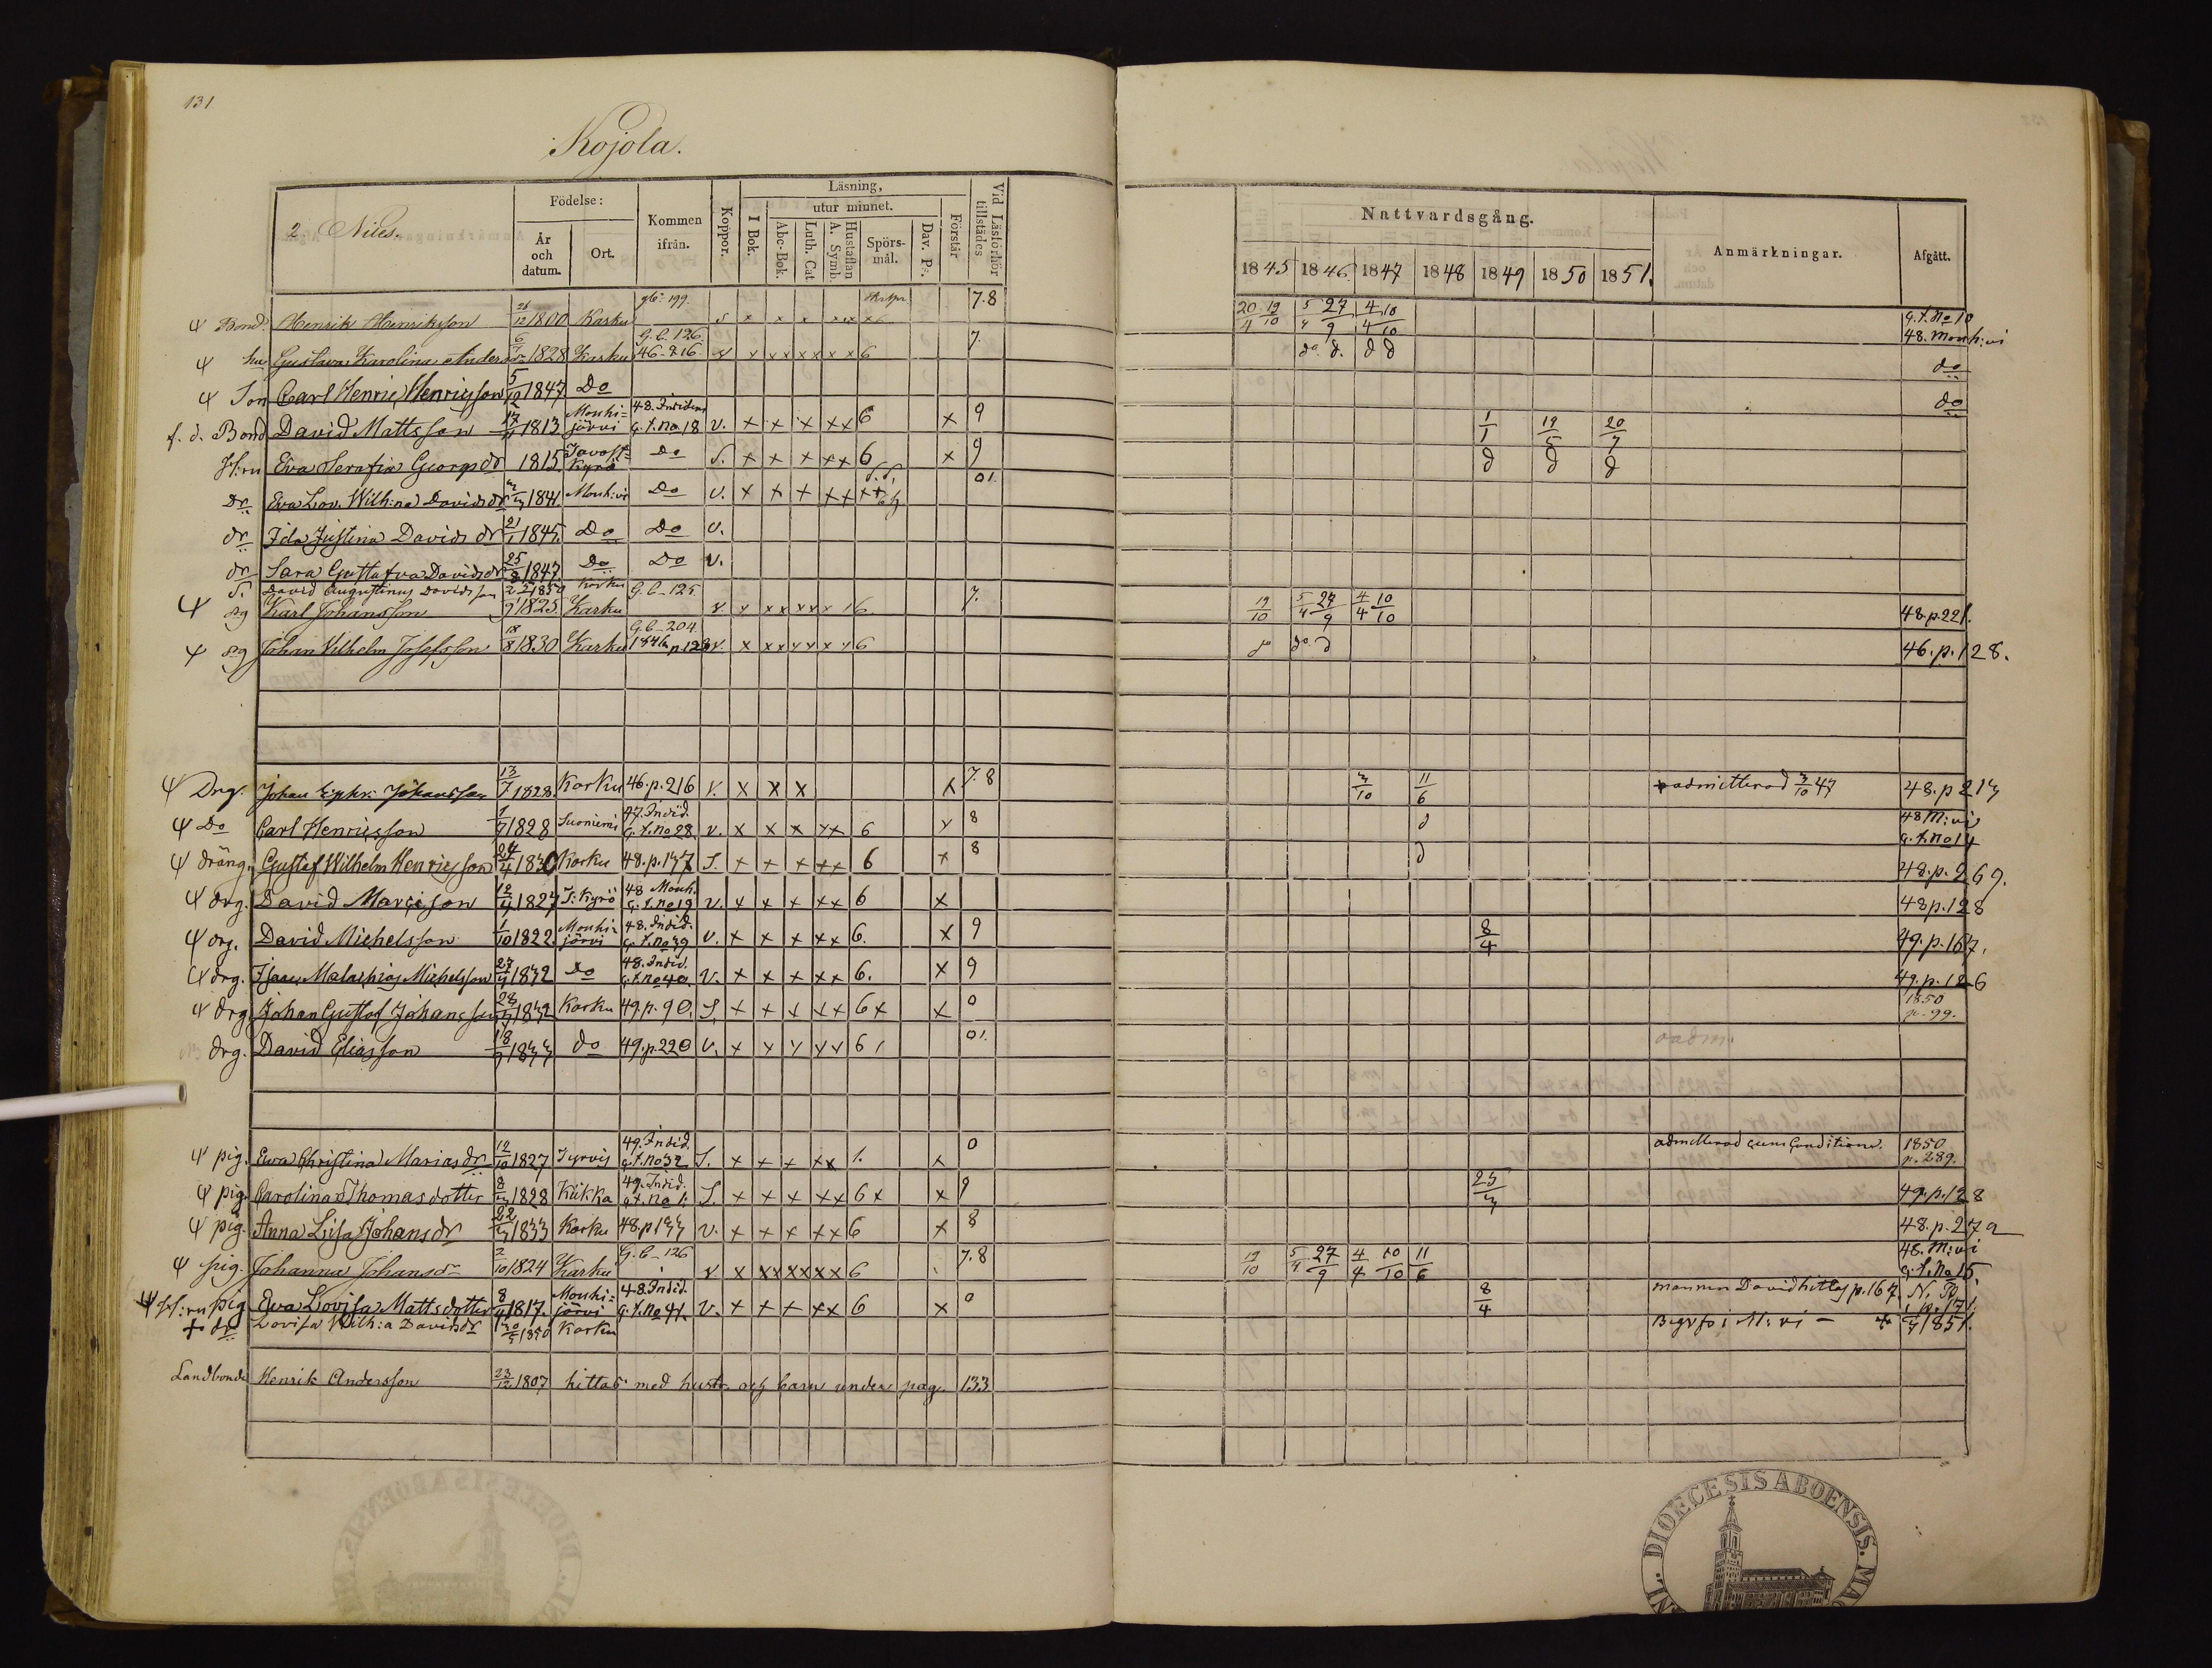 131
Kojola.
2. Niles.
Födelse:
År och datum.
Ort.
Kommen ifrån.
Koppor.
Läsning,
I Bok.
utur minnet.
Abc-Bok.
Luth. Cat.
Hustaflan A. Symb.
Spörsmål.
Dav. Ps.
Förstår
Vid Läsförhör tillstädes
Nattvardsgång.
1845 1846 1847 1848 1849 1850 1851.
Anmärkningar.
Afgått.
Bond. Henrik Henriksson 1800 Karku gb. 199. 7.8 20/4 19/10 5/4 27/9 4/4 10/10 g.t. No 10 48. Mouh:vi
hu Gustava Karolina Anders dr 1828 Karku G.b. 126. 46- 216 v x x x x x x x 6 7. do d. d d do
Son Carl Henric Henricsson 5/12 1847 Do do
f. d. Bond David Mattsson 1813 Mouhijärvi 48. Inviden g.t. No 18 v. x x x x x 6 x 9 1/1 19/5 20/7
H:ru Eva Serafia Georgs dr 1815 Tavast Kyrö Do S. x x x x x 6 x 9 d d d
Dr Eva Lov. Wilh:na Davids dr 1841 Mouh:vi Do v. x x x x x x x 01
dr Ida Justina Davids dr 21/1 1845. Do Do v.
dr Sara Gustafva Davids dr 25/8 1847 Do Do v.
S. David Augustinus Davidsson 1850 Karku
dg Karl Johansson 1825. Karku G.b. 125 v x x x x x x 6 7. 19/10 5/4 27/9 4/4 10/10 48. p. 221.
dg Johan Wilhelm Josefsson 18/8 1830 Karku G.b. 204 1846 p. 128 v. x x x x x x x 6 d do d 46. p. 128.
Drg. Johan Ephr: Johansson 13/7 1828 Karku 46. p. 216 v. x x x x 7.8 3/10 11/6 admitterad 3/10 47 48. p 213
Do Carl Henricsson 1/7 1828 Suoniemi 47. Invid. g.t. No 28. v. x x x x x 6 x 8 d 48 M:vi g.t. No 14
dräng. Gustaf Wilhelm Henricsson 24/4 1830 Karku 48. p. 137 S. x x x x x 6 x 8 d 48. p. 269.
drg. David Marcisson 1827 T: Kyrö 48 Mouh. g.t. No 19 v. x x x x x 6 x 48 p. 128
drg. David Michelsson 1/10 1822 Mouhijärvi 48. Invid. g.t. No 39 v. x x x x x 6. x 9 8/4 49. p. 167.
drg. Isaac Malachias Michelsson 1832 Do 48. Invid. g.t. No 40. v. x x x x x 6. x 9 49. p. 126
drg. Johan Gustaf Johansson 1832 Karku 49. p. 90. S. x x x x x 6 x x 0 1850 p. 99.
drg. David Eliasson 18/9 1833 do 49. p. 220 v. x x x x x 6 1 01. oadm.
pig. Eva Christina Marias dr 12/10 1827 Tyrvis 49. Invid. g.t. No 32 S. x x x x x 1. x 0 admitterad cum conditione. 1850 p. 289.
pig. Carolina Thomasdotter 8/3 1828 Kiikka 49. Invid. g.t. No 1. S. x x x x x 6 x x 9 25/3 49. p. 128
pig. Anna Lisa Johans dr 22/3 1833 Karku 48. p 133 v. x x x x x 6 x 8 48. p. 272
pig. Johanna Johans dr 2/10 1824 Karku G.b. 126 v x x x x x x x 6 7.8 19/10 5/4 27/9 4/4 10/10 11/6 48. M:vi g.t. No 15.
H:ru pig Eva Lovisa Mattsdotter 1817. Mouhijärvi 48. Invid. g.t. No 41. v. x x x x x 6 x 0 8/4 mannen David hittas p. 167 N. B. p. 171
dr Lovisa Wilh:a Davids dr 1850 Karku Begrfs i M:vi 1851.
Landbonde Henrik Andersson 23/12 1807 hittas med hustr och barn under pag. 133
DIOECESIS ABOENSIS.